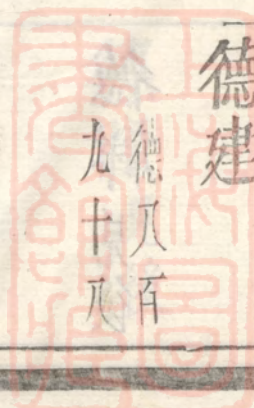 德建
德八百
九十八